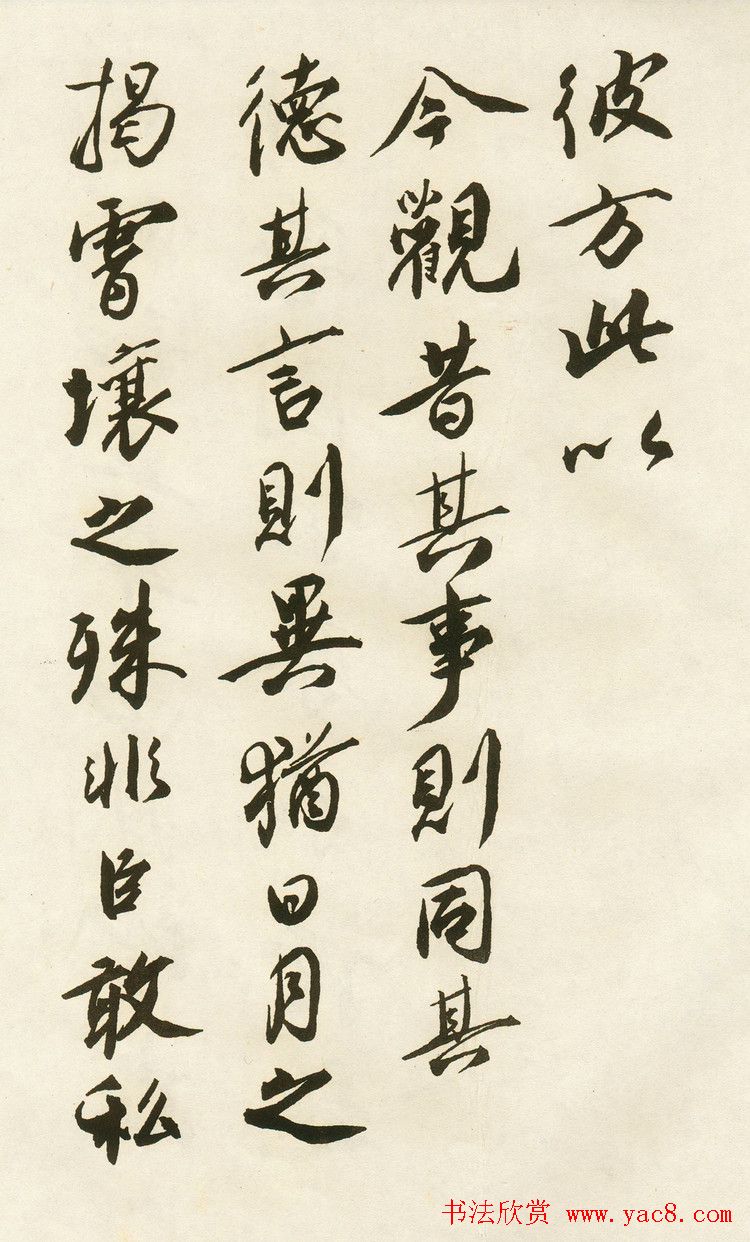 彼方此以
今觀昔其事則同其
德其言則異猶日月之
揭霄壤之殊非臣敢私
书法欣赏 www.yac8.com